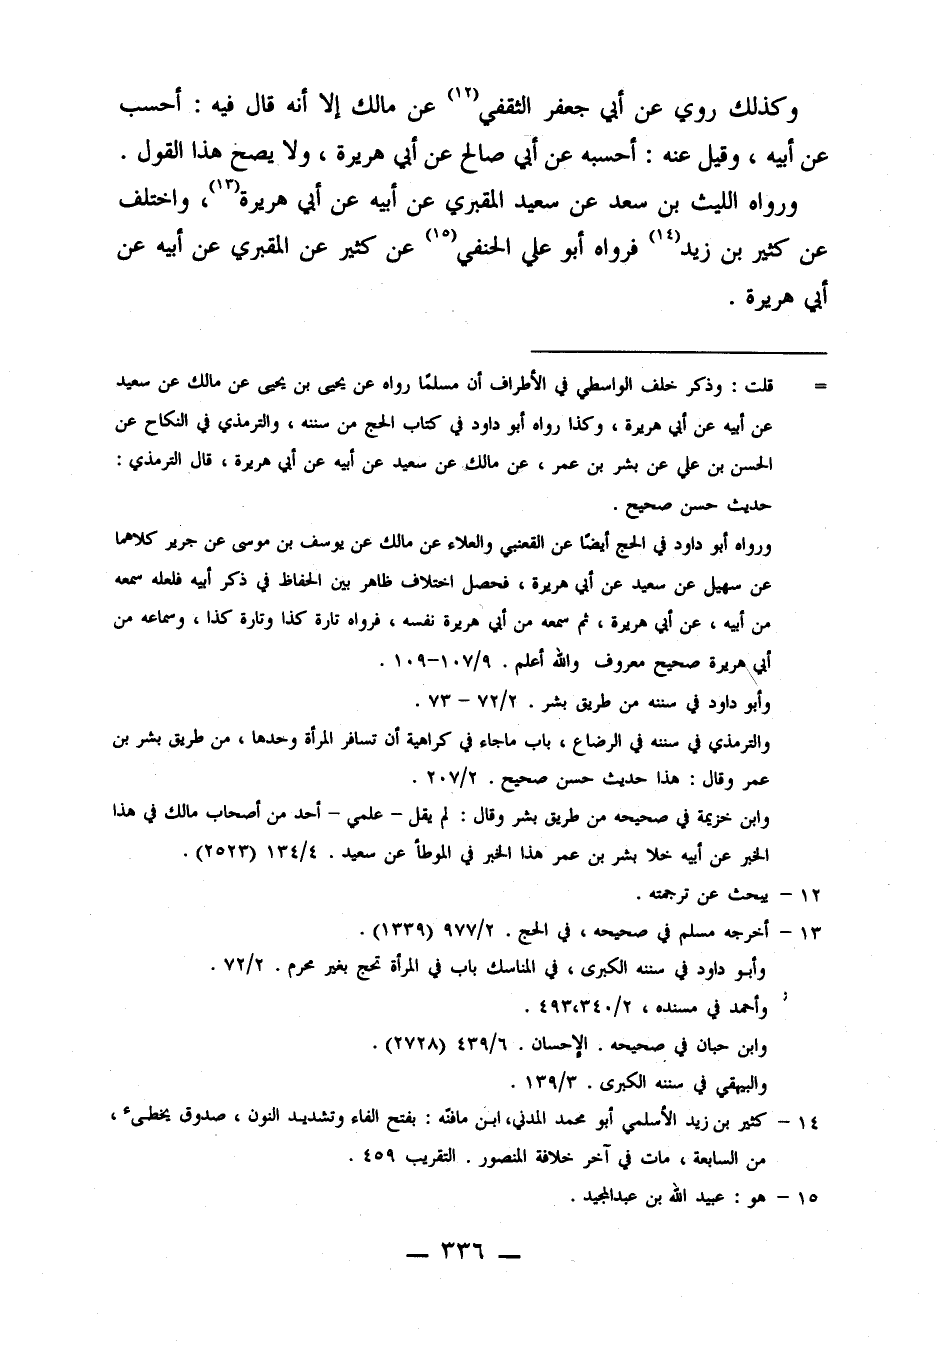 وكذلك روي عن أبي جعفر الثقفي(١٢) عن مالك إلا أنه قال فيه : أحسب
عن أبيه ، وقيل عنه : أحسبه عن أبي صالح عن أبي هريرة ، ولا يصح هذا القول .
ورواه الليث بن سعد عن سعيد المقبري عن أبيه عن أبي هريرة(١٣)، واختلف
عن كثير بن زيد(١٤) فرواه أبو علي الحنفي(١٥) عن كثير عن المقبري عن أبيه عن
أبي هريرة .
= قلت : وذكر خلف الواسطي في الأطراف أن مسلمًا رواه عن يحيى بن يحيى عن مالك عن سعيد
عن أبيه عن أبي هريرة ، وكذا رواه أبو داود في كتاب الحج من سننه ، والترمذي في النكاح عن
الحسن بن علي عن بشر بن عمر ، عن مالك عن سعيد عن أبيه عن أبي هريرة ، قال الترمذي :
حديث حسن صحيح .
ورواه أبو داود في الحج أيضًا عن القعنبي والعلاء عن مالك عن يوسف بن موسى عن جرير كلاهما
عن سهيل عن سعيد عن أبي هريرة ، فحصل اختلاف ظاهر بين الحفاظ في ذكر أبيه فلعله سمعه
من أبيه ، عن أبي هريرة ، ثم سمعه من أبي هريرة نفسه ، فرواه تارة كذا وتارة كذا ، وسماعه من
أبي هريرة صحيح معروف والله أعلم . ١٠٧/٩–١٠٩ .
وأبو داود في سننه من طريق بشر . ٧٢/٢ – ٧٣ .
والترمذي في سننه في الرضاع ، باب ماجاء في كراهية أن تسافر المرأة وحدها ، من طريق بشر بن
عمر وقال : هذا حديث حسن صحيح . ٢٠٧/٢ .
وابن خزيمة في صحيحه من طريق بشر وقال : لم يقل – علمي – أحد من أصحاب مالك في هذا
الخبر عن أبيه خلا بشر بن عمر هذا الخبر في الموطأ عن سعيد . ١٣٤/٤ (٢٥٢٣) .
١٢ – يبحث عن ترجمته .
١٣ – أخرجه مسلم في صحيحه ، في الحج . ٩٧٧/٢ (١٣٣٩) .
وأبو داود في سننه الكبرى ، في المناسك باب في المرأة تحج بغير محرم . ٧٢/٢ .
وأحمد في مسنده ، ٤٩٣،٣٤٠/٢ .
وابن حبان في صحيحه . الإحسان . ٤٣٩/٦ (٢٧٢٨) .
والبيهقي في سننه الكبرى . ١٣٩/٣ .
١٤ – كثير بن زيد الأسلمي أبو محمد المدني، ابن مافنّه : بفتح الفاء وتشديد النون ، صدوق يخطىء ،
من السابعة ، مات في آخر خلافة المنصور . التقريب ٤٥٩ .
١٥ – هو : عبيد الله بن عبدالمجيد .
— ٣٣٦ —